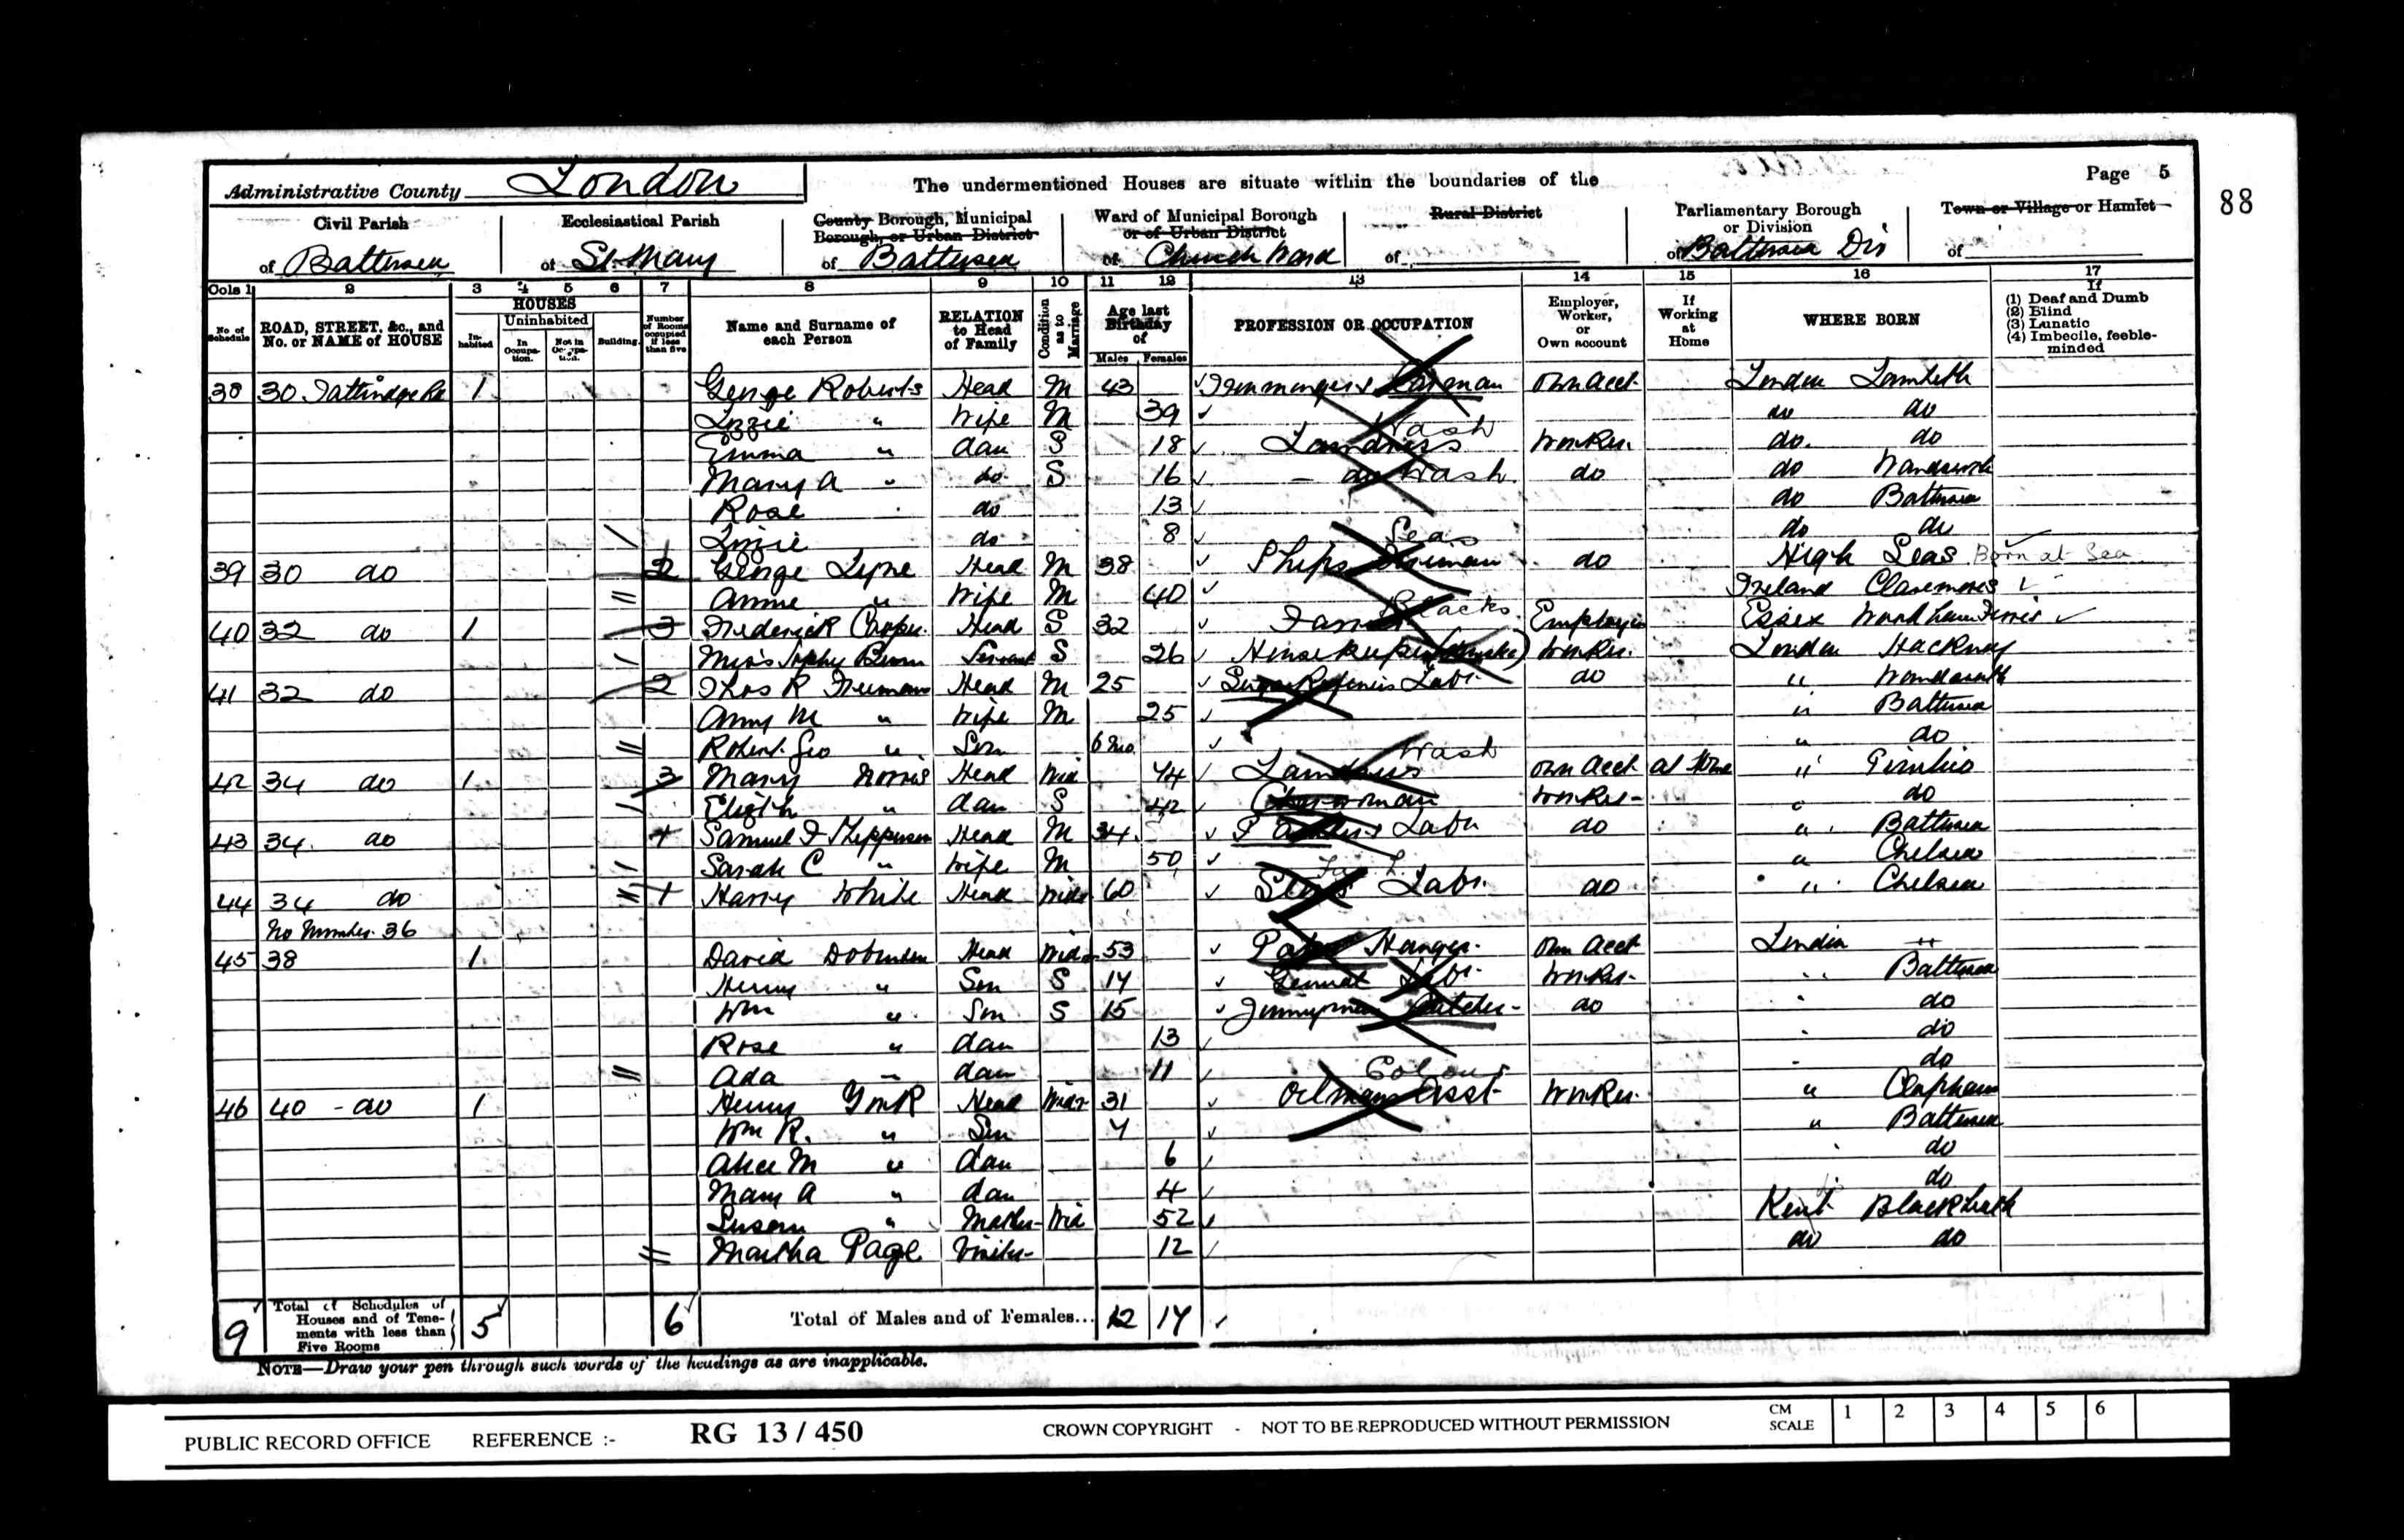 Page 5
88
Administrative County London The undermentioned Houses are situate within the boundaries of the
Civil Parish of Battersea
Ecclesiastical Parish of St Mary
County Borough, Municipal Borough, or Urban District of Battersea
Ward of Municipal Borough or of Urban District of Church Ward
Rural District of
Parliamentary Borough or Division of Battersea Div
Town or Village or Hamlet of
Cols 1 2 3 4 5 6 7 8 9 10 11 12 13 14 15 16 17
No of Schedule
ROAD, STREET, &c., and No. or NAME of HOUSE
HOUSES
In-habited
Uninhabited
In Occupa-tion.
Not in Occupa-tion.
Building.
Number of Rooms occupied if less than five
Name and Surname of each Person
RELATION to Head of Family
Condition as to Marriage
Age last Birthday of
Males Females
PROFESSION OR OCCUPATION
Employer, Worker, or Own account
If Working at Home
WHERE BORN
If
(1) Deaf and Dumb
(2) Blind
(3) Lunatic
(4) Imbecile, feeble-minded
38 30 1 George Roberts Head M 43 Ironmongers Carman Own acct London Lambeth
Lizzie " Wife M 39 do do
Emma " dau S 18 Laundress Wash Worker do. do
Mary A " do S 16 do Wash do do Wandsworth
Rose do 13 do Battersea
Lizzie do 8 do do
39 30 do 2 George Lyne Head M 38 Ships Fireman Seas do High Seas Born at Sea
Annie " Wife M 40 Ireland
40 32 do 1 3 Frederick Head S 32 Blacks Employer Essex
Miss Servant S 26 Housekeeper Worker London Hackney
41 32 do 2 Thos R Freeman Head M 25 Labr do " Wandsworth
Amy M " Wife M 25 " Battersea
Robert Geo " Son 6 mo " do
42 34 do 1 3 Mary Norris Head Wid 74 Laundress Wash Own acct at Home " Pimlico
Elizth " dau S 42 Charwoman Worker " do
43 34 do Samuel Head M 34 Labr do " Battersea
Sarah C " Wife M 50 " Chelsea
44 34 do Harry White Head Widr 60 Labr. do " Chelsea
No Number 36
45 38 1 David Head Widr 53 Paper Hanger Own acct London "
Henry " Son S 17 General Labr Worker " Battersea
Wm " Son S 15 Butcher do " do
Rose " dau 13 do
Ada dau 11 do
46 40 - do 1 Henry York Head Widr 31 Oilmans Asst Colour Worker " Clapham
Wm R. " Son 7 " Battersea
Alice M " dau 6 do
Mary A " dau 4 do
Susan " Mother Wid 52 Kent Blackheath
Martha Page Visitor 12 do do
9 Total of Schedules of Houses and of Tenements with less than Five Rooms 5 6 Total of Males and of Females... 12 17
NOTE—Draw your pen through such words of the headings as are inapplicable.
PUBLIC RECORD OFFICE REFERENCE :- RG 13 / 450 CROWN COPYRIGHT - NOT TO BE REPRODUCED WITHOUT PERMISSION CM SCALE 1 2 3 4 5 6